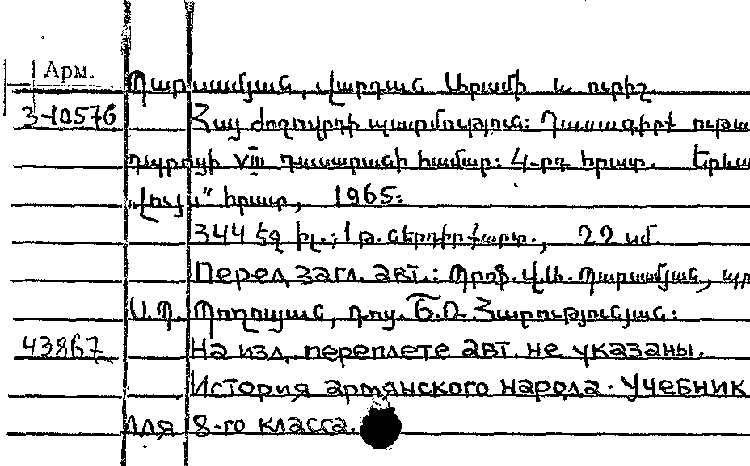 Арм. Պարսամյան, Վարդան Արամի և ուրիշ.
3-10576 Հայ ժողովրդի պատմություն: Դասագիրք ութա
դպրոցի VIII դասարանի համար: 4-րդ հրատ. Երևա
„Լույս" հրատ., 1965:
344 էջ իլ.; 1 թ. ներդիր քարտ., 22 սմ.
Перед загл. авт.: Պրոֆ. Վ.Ա. Պարսամյան, պր
Ս.Պ. Պողոսյան, դոց. Շ.Ռ. Հարությունյան:
43867 На изд. переплете авт. не указаны.
История армянского народа. Учебник
для 8-го класса.